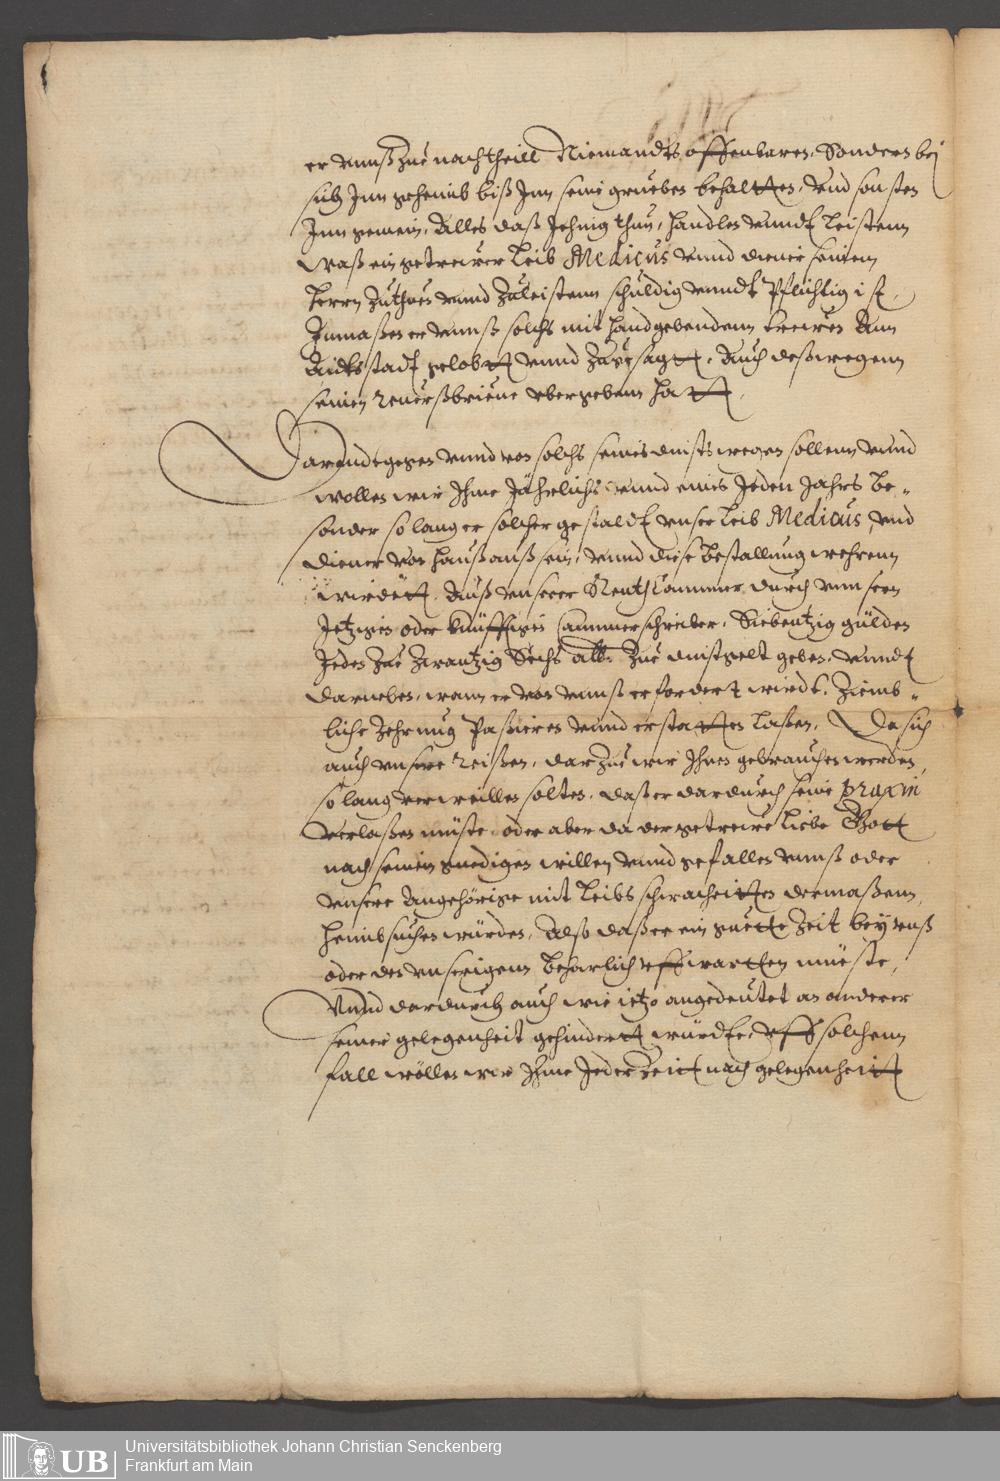 er vnnß zue nachtheill Niemandts offenbaren, Sondern bej
sich Inn geheimb biß Inn seine grueben behaltten, Vnd sonsten
Inn gemein, Alles daß Jehnig thun, handlen vnndt Leistenn
Waß ein getrewer Leib Medicus vnnd diener seinem
Herrn Zuthuen vnnd Zuleistenn schuldig vnndt Pflichtig ist,
Inmaßen er vnnß solchs mit handgebendenn trewen Ann
Aidtsstadt gelobtt vnnd Zugesagtt, Auch deßwegenn
seinen Reuerßbrieue vbergebenn hatt,
Darendtgegen vnnd von solchs seines dinsts wegen sollenn vnnd
wollen wir Ihme Jährlichs vnnd eines Jeden Jahrs be-
sonder so lang er solcher gestaldt vnser Leib Medicus vnd
diener von Hauß auß sein, vnnd diese Bestallung wehrenn
wirdett, Auß vnserer RenthCammer durch vnnsern
Jetzigen oder künfftigen Cammerschreiber, Siebentzig gülden
Jeden Zue Zwantzig Sechs alb. Zue dinstgelt geben, vnndt
darneben, wann er von vnnß erfordert wirdt, Ziemb-
liche Zehrung Passieren vnnd erstatten laßen, Da sich
auch vnsere Reißen, dar Zue wir Ihnen gebrauchen werden,
so lang verweillen solten, daß er dardurch seine praxin
verlaßen müste, oder aber da der getrewe liebe Gott
nach seinem gnedigen willen vnnd gefallen vnnß oder
vnsere Angehörige mit Leibs schwacheitten dermaßenn,
heimbsuchen würden, Also daß er ein guette Zeit bey vnß
oder den vnserigenn beharlich vffwartten müeste,
Vnnd dardurch auch wie ietzo angedeutet an anderer
seiner gelegenheit gehindertt würde, vff solchenn
fall wöllen wir Ihme Jeder Zeitt nach gelegenheitt
Universitätsbibliothek Johann Christian Senckenberg
Frankfurt am Main
UB